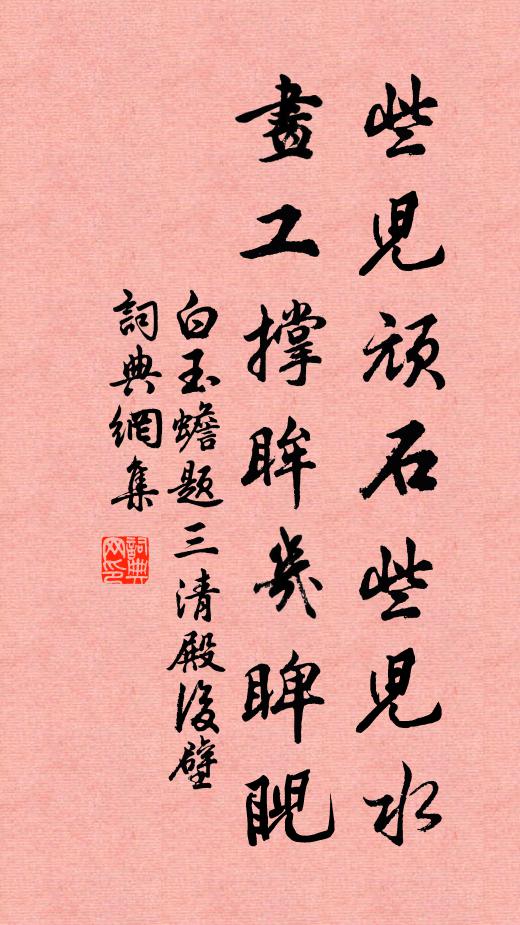 些兒頑石些兒水
畫工撐眸幾睥睨
白玉蟾題三清殿後壁
詞典網集
詞典网印